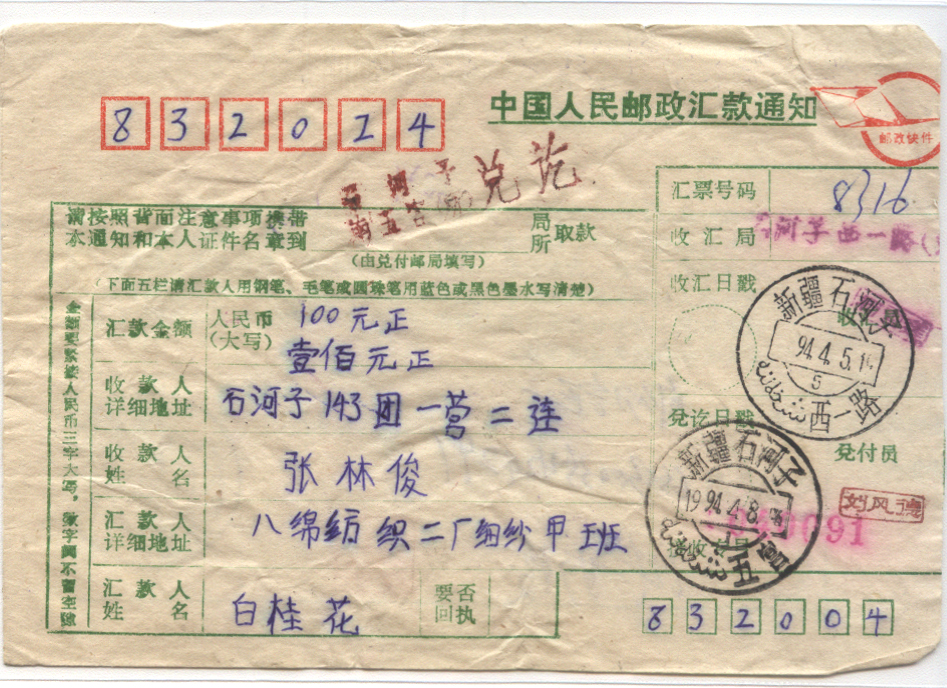 中国人民邮政汇款通知
邮政快件
832024
石河子
兑讫
汇票号码 8316
请按照背面注意事项携带
本通知和本人证件名章到 局所取款
(由兑付邮局填写)
收汇局 石河子西一路
(下面五栏请汇款人用钢笔、毛笔或圆珠笔用蓝色或黑色墨水写清楚)
收汇日戳
收汇员
汇款金额 人民币(大写) 100元正
壹佰元正
新疆石河子
94.4.5.1
西一路
收款人详细地址 石河子143团一营二连
兑讫日戳
兑付员
收款人姓名 张林俊
新疆石河子
1994.4.8
五
刘风德
汇款人详细地址 八綿紡織二厂细纱甲班
接收人员
汇款人姓名 白桂花
要否回执
832004
金额要紧接人民币三字大写。数字间不留空隙